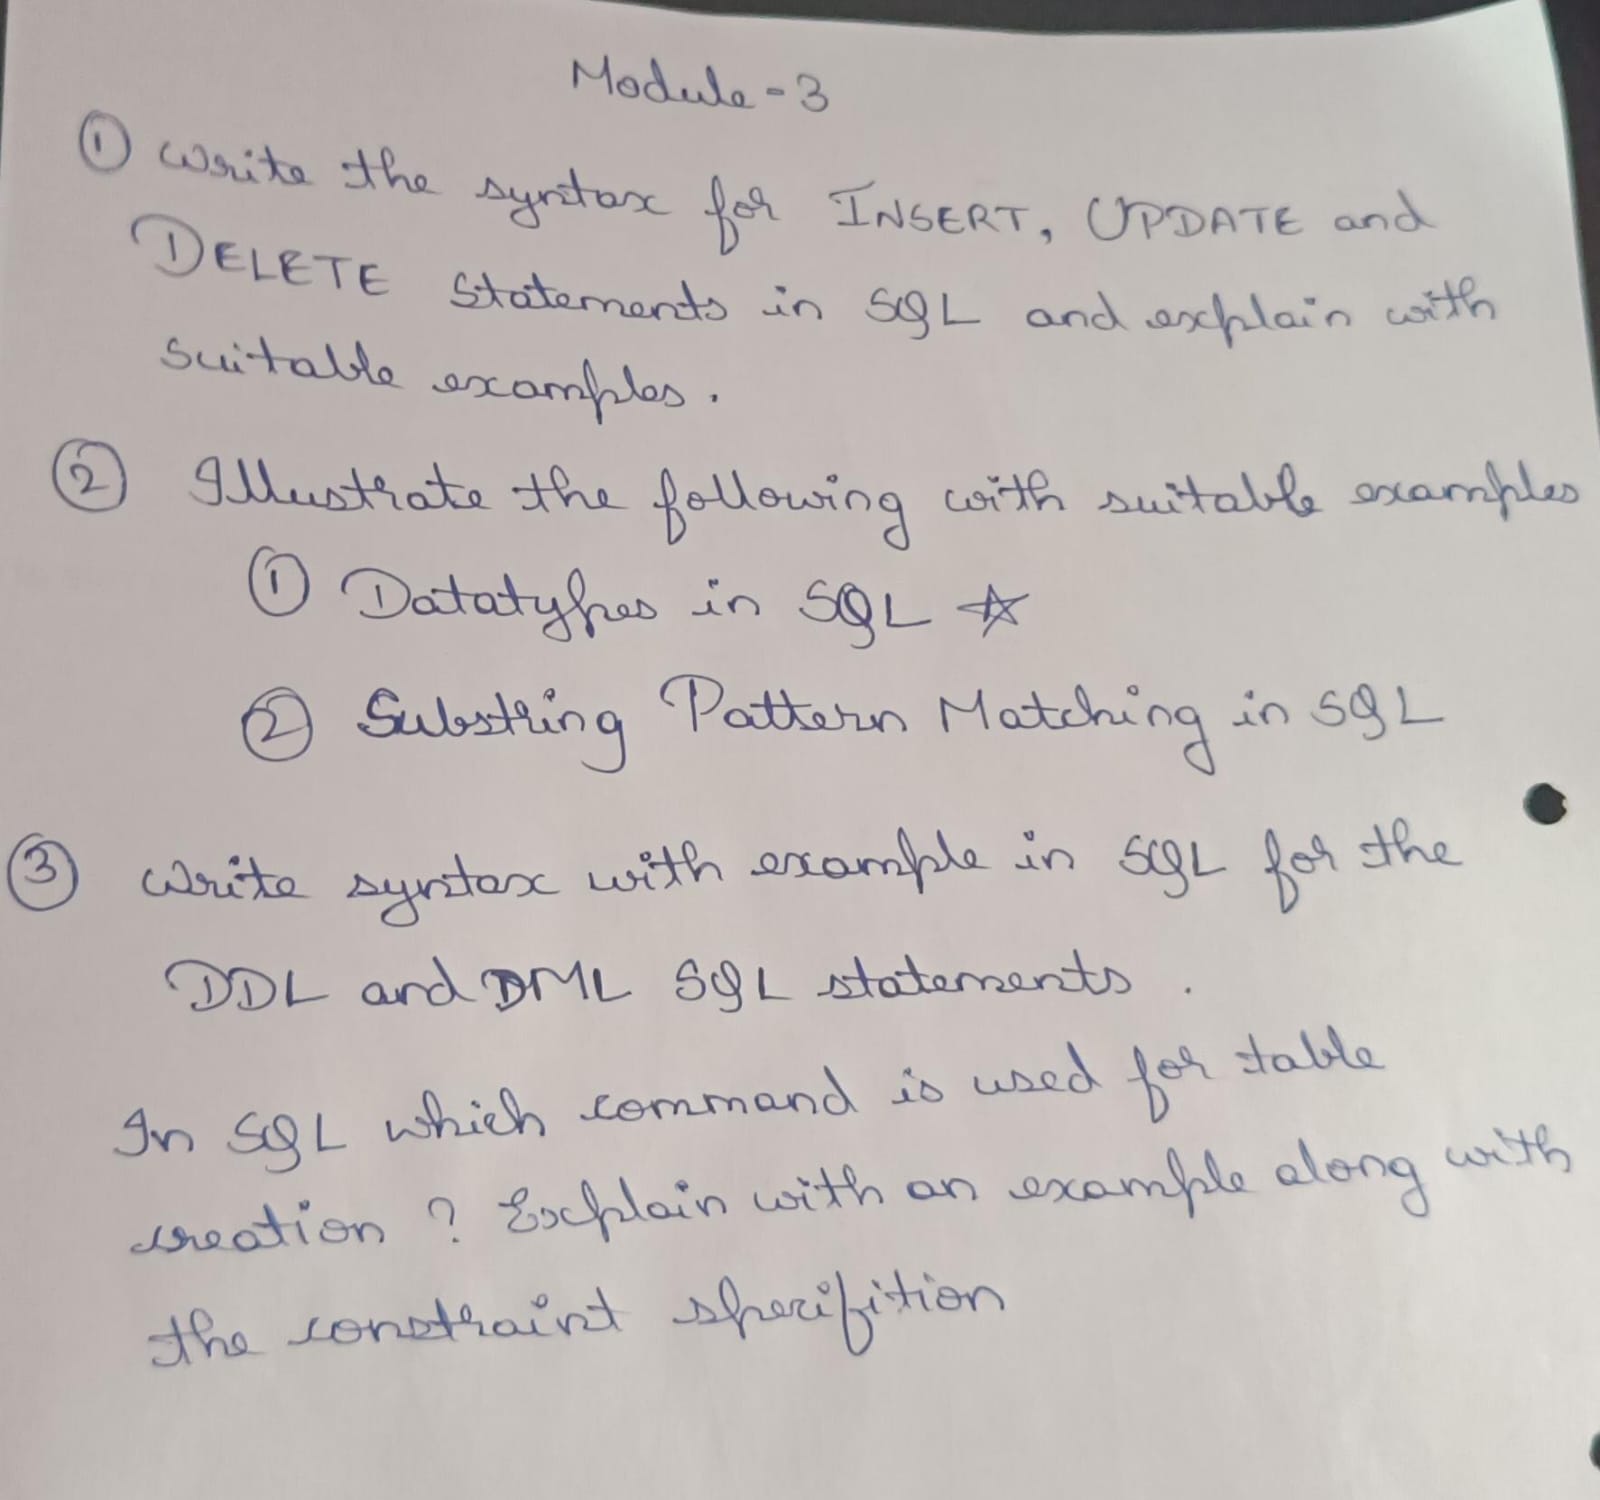 Module - 3
① Write the syntax for INSERT, UPDATE and
DELETE Statements in SQL and explain with
suitable examples.
② Illustrate the following with suitable examples
① Datatypes in SQL ☆
② Substring Pattern Matching in SQL
③ Write syntax with example in SQL for the
DDL and DML SQL statements.
In SQL which command is used for table
creation ? Explain with an example along with
the constraint specifition